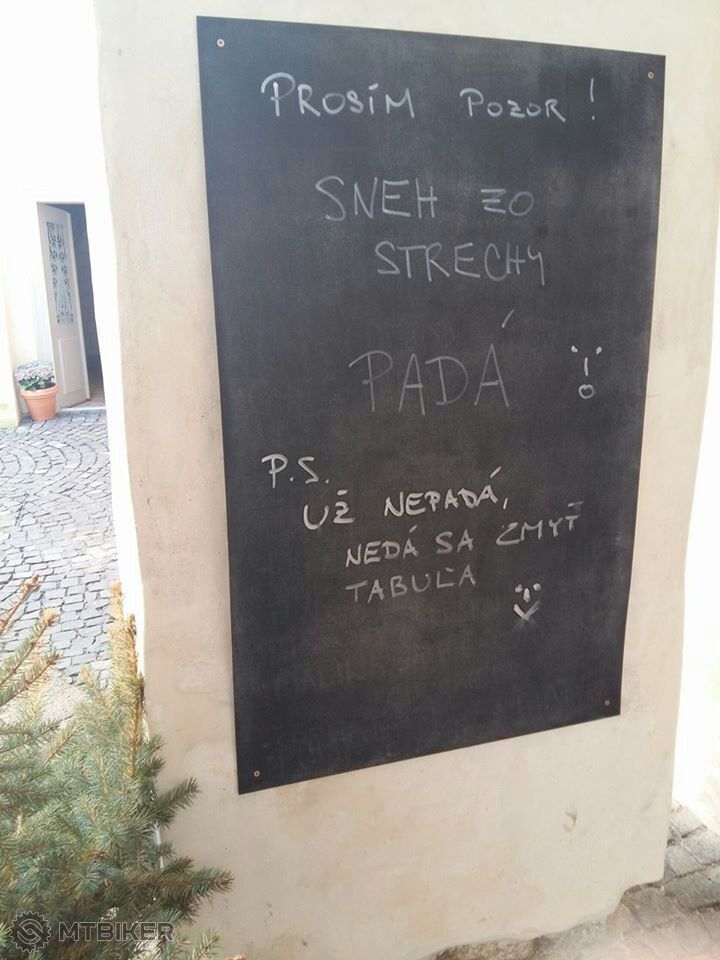 PROSÍM POZOR!
SNEH ZO
STRECHY
PADÁ
P.S.
UŽ NEPADÁ,
NEDÁ SA ZMYŤ
TABUĽA
MTBIKER